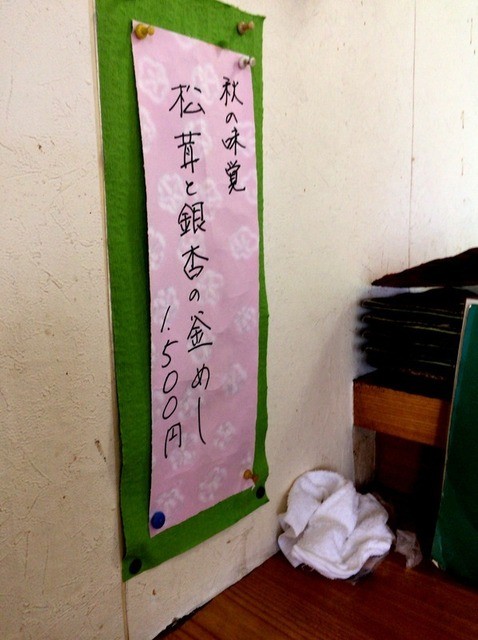 秋の味覚
松茸と銀杏の釜めし
1.500円